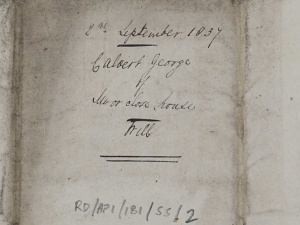 2nd September 1837
Calvert George
of
Moor Close House
Will
RD/AP1/181/55/2